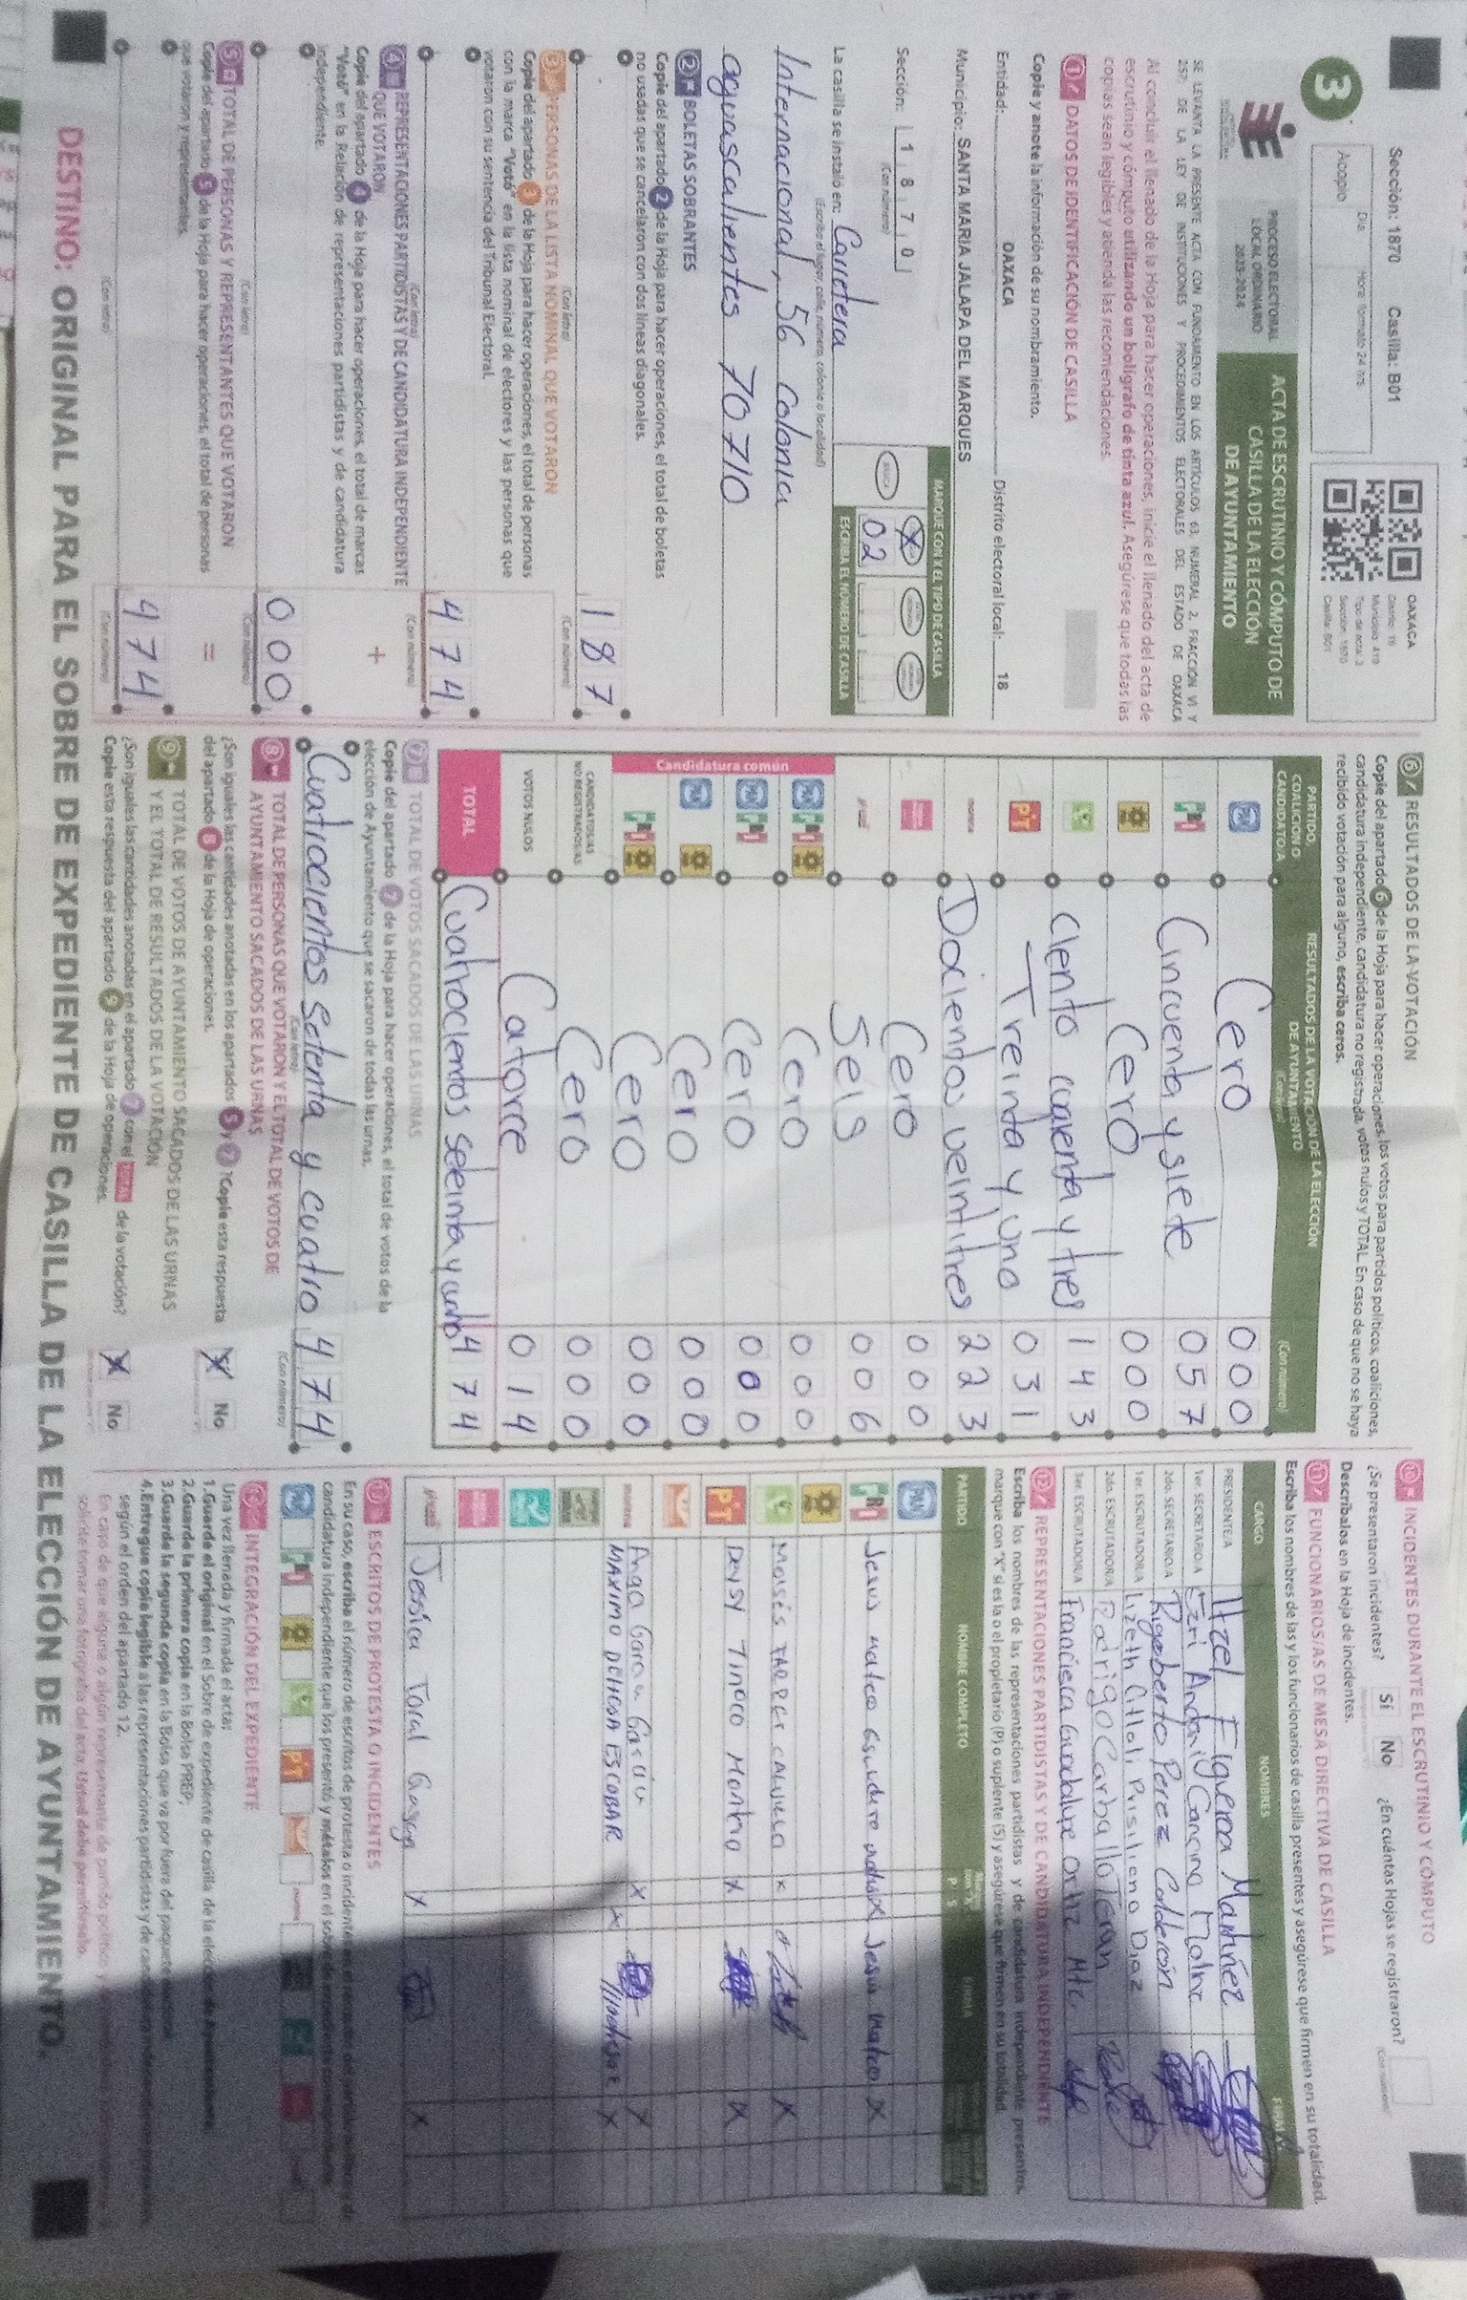 3
Sección: 1870 Casilla: B01
Día Hora (formato 24 hrs)
Acopio
OAXACA
PROCESO ELECTORAL
LOCAL ORDINARIO
2023-2024
ACTA DE ESCRUTINIO Y CÓMPUTO DE
CASILLA DE LA ELECCIÓN
DE AYUNTAMIENTO
SE LEVANTA LA PRESENTE ACTA CON FUNDAMENTO EN LOS ARTÍCULOS 63, NUMERAL 2, FRACCIÓN VI Y
257, DE LA LEY DE INSTITUCIONES Y PROCEDIMIENTOS ELECTORALES DEL ESTADO DE OAXACA
Al concluir el llenado de la Hoja para hacer operaciones, inicie el llenado del acta de
escrutinio y cómputo utilizando un bolígrafo de tinta azul. Asegúrese que todas las
copias sean legibles y atienda las recomendaciones.
1 DATOS DE IDENTIFICACIÓN DE CASILLA
Copie y anote la información de su nombramiento.
Entidad: OAXACA Distrito electoral local: 18
Municipio: SANTA MARIA JALAPA DEL MARQUES
Sección: 1870
(Con número)
MARQUE CON X EL TIPO DE CASILLA
ESCRIBA EL NÚMERO DE CASILLA
02
La casilla se instaló en: Carretera
(Escriba el lugar, calle, número, colonia o localidad)
Internacional, 56 Colonia
aguascalientes 70710
2 BOLETAS SOBRANTES
Copie del apartado 2 de la Hoja para hacer operaciones, el total de boletas
no usadas que se cancelaron con dos líneas diagonales.
187
(Con letra) (Con número)
3 PERSONAS DE LA LISTA NOMINAL QUE VOTARON
Copie del apartado 3 de la Hoja para hacer operaciones, el total de personas
con la marca "Votó" en la lista nominal de electores y las personas que
votaron con su sentencia del Tribunal Electoral.
474
(Con letra) (Con número)
4 REPRESENTACIONES PARTIDISTAS Y DE CANDIDATURA INDEPENDIENTE
QUE VOTARON
Copie del apartado 4 de la Hoja para hacer operaciones, el total de marcas
"Votó" en la Relación de representaciones partidistas y de candidatura
independiente.
+
000
(Con letra) (Con número)
5 TOTAL DE PERSONAS Y REPRESENTANTES QUE VOTARON
Copie del apartado 5 de la Hoja para hacer operaciones, el total de personas
que votaron y representantes.
=
474
(Con letra) (Con número)
6 RESULTADOS DE LA VOTACIÓN
Copie del apartado 6 de la Hoja para hacer operaciones, los votos para partidos políticos, coaliciones,
candidatura independiente, candidatura no registrada, votos nulos y TOTAL. En caso de que no se haya
recibido votación para alguno, escriba ceros.
PARTIDO, COALICIÓN O CANDIDATO/A
RESULTADOS DE LA VOTACIÓN DE LA ELECCIÓN DE AYUNTAMIENTO
(Con letra) (Con número)
PAN Cero 000
PRI Cincuenta y siete 057
Cero 000
Ciento cuarenta y tres 143
PT Treinta y uno 031
morena Docientos veintitres 223
Cero 000
Seis 006
Candidatura común
Cero 000
Cero 000
Cero 000
Cero 000
CANDIDATOS/AS NO REGISTRADOS/AS Cero 000
VOTOS NULOS Catorce 014
TOTAL Cuatrocientos seteinta y cuatro 474
7 TOTAL DE VOTOS SACADOS DE LAS URNAS
Copie del apartado 7 de la Hoja para hacer operaciones, el total de votos de la
elección de Ayuntamiento que se sacaron de todas las urnas.
Cuatrocientos Setenta y cuatro 474
(Con letra) (Con número)
8 TOTAL DE PERSONAS QUE VOTARON Y EL TOTAL DE VOTOS DE
AYUNTAMIENTO SACADOS DE LAS URNAS
¿Son iguales las cantidades anotadas en los apartados 5 y 7? Copie esta respuesta
del apartado 8 de la Hoja de operaciones.
X No
9 TOTAL DE VOTOS DE AYUNTAMIENTO SACADOS DE LAS URNAS
Y EL TOTAL DE RESULTADOS DE LA VOTACIÓN
¿Son iguales las cantidades anotadas en el apartado 7 con el TOTAL de la votación?
Copie esta respuesta del apartado 9 de la Hoja de operaciones.
X No
10 INCIDENTES DURANTE EL ESCRUTINIO Y CÓMPUTO
¿Se presentaron incidentes? Sí No ¿En cuántas Hojas se registraron?
Descríbalos en la Hoja de incidentes.
11 FUNCIONARIOS/AS DE MESA DIRECTIVA DE CASILLA
Escriba los nombres de las y los funcionarios de casilla presentes y asegúrese que firmen en su totalidad.
CARGO NOMBRES FIRMA
PRESIDENTE/A Itzel Figueroa Martiñez
1er. SECRETARIO/A
2do. SECRETARIO/A Rigoberto Perez Calderón
1er. ESCRUTADOR/A
2do. ESCRUTADOR/A Rodrigo Carballo Terán
3er. ESCRUTADOR/A Francisca Guadalupe Ortiz
12 REPRESENTACIONES PARTIDISTAS Y DE CANDIDATURA INDEPENDIENTE
Escriba los nombres de las representaciones partidistas y de candidatura independiente presentes,
marque con "X" si es la o el propietario (P) o suplente (S) y asegúrese que firmen en su totalidad.
PARTIDO NOMBRE COMPLETO P S FIRMA
PAN
PRI
PT Deysy Tinoco
morena
MAXIMO DELIGON ESCOBAR X
Jessica Toral X
13 ESCRITOS DE PROTESTA O INCIDENTES
En su caso, escriba el número de escritos de protesta o incidentes
14 INTEGRACIÓN DEL EXPEDIENTE
Una vez llenada y firmada el acta:
1. Guarde el original en el Sobre de expediente de casilla de la elección de Ayuntamiento.
2. Guarde la primera copia en la Bolsa PREP.
3. Guarde la segunda copia en la Bolsa que va por fuera del paquete electoral.
4. Entregue copia legible a las representaciones partidistas y de
según el orden del apartado 12.
DESTINO: ORIGINAL PARA EL SOBRE DE EXPEDIENTE DE CASILLA DE LA ELECCIÓN DE AYUNTAMIENTO.